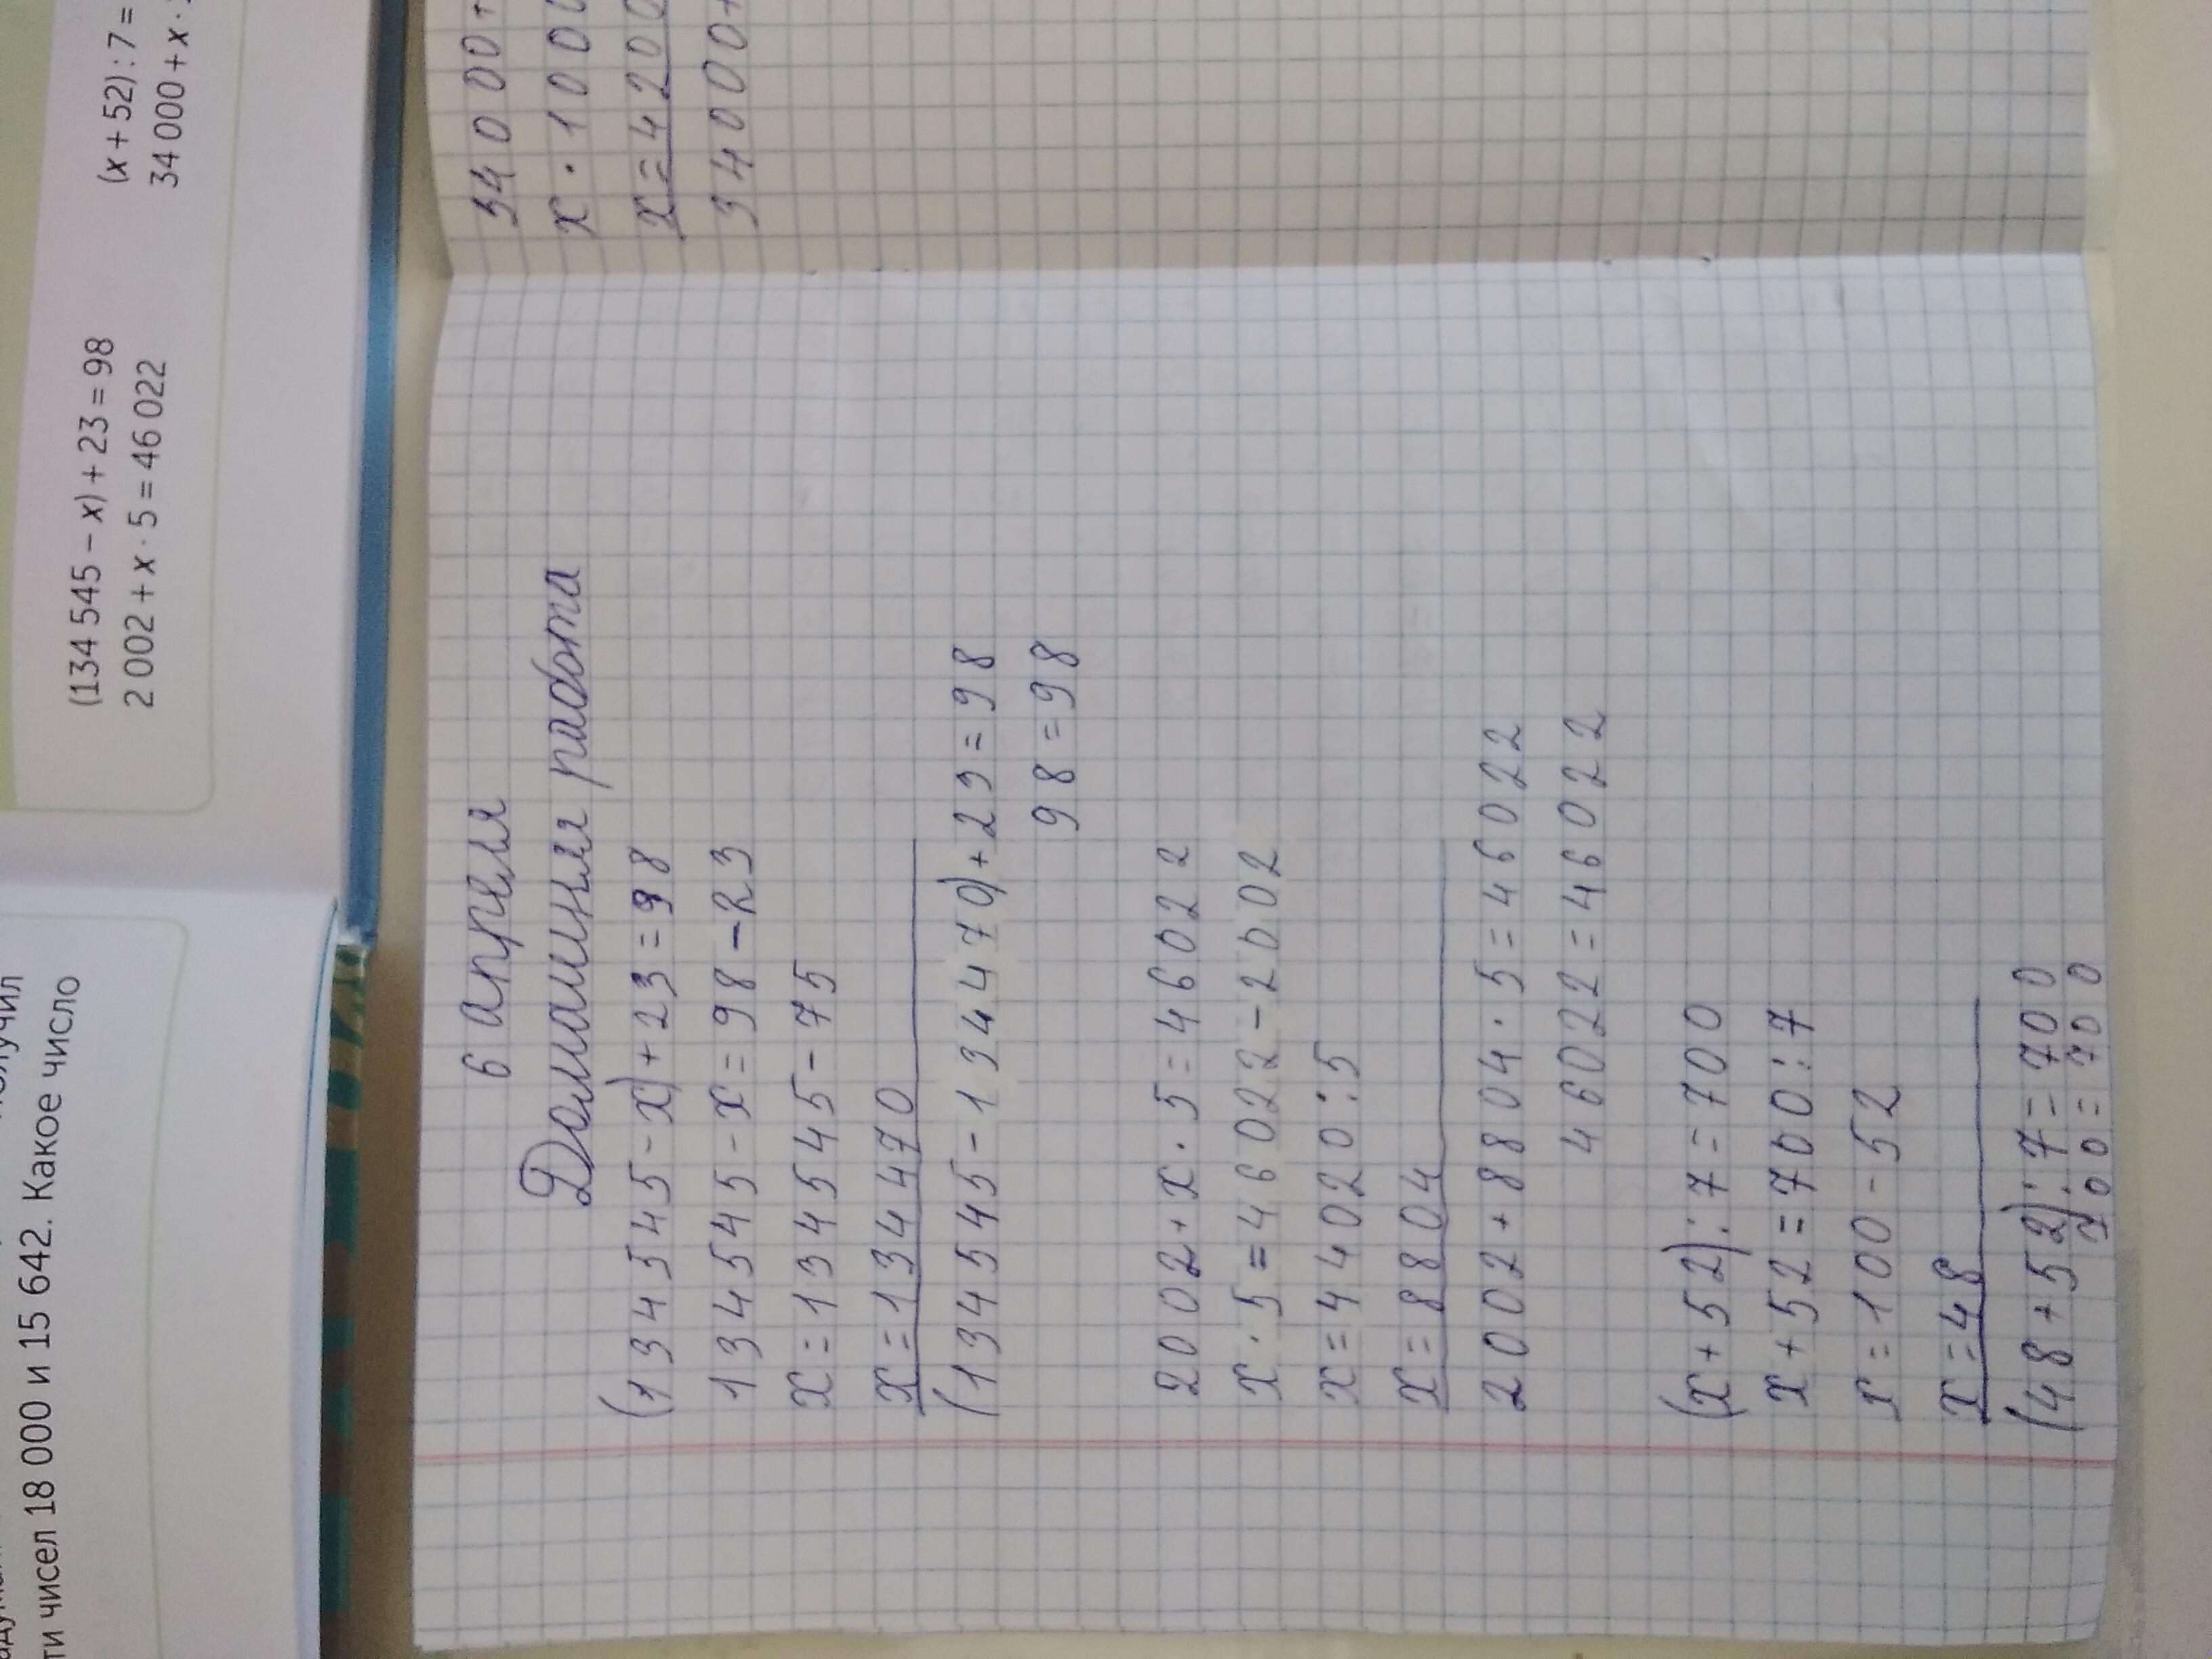 лучил
ти чисел 18 000 и 15 642. Какое число
(134 545 – x) + 23 = 98
2 002 + x · 5 = 46 022
(x + 52) : 7 =
34 000 + x ·
6 апреля
Домашняя работа
(134545-x)+23=98
134545-x=98-23
x=134545-75
x=134470
(134545-134470)+23=98
98=98
2002+x·5=46022
x·5=46022-2002
x=44020:5
x=8804
2002+8804·5=46022
46022=46022
(x+52):7=700
x+52=700:7
x=100-52
x=48
(48+52):7=700
700=700
34000+
x·100
x=420
34000+